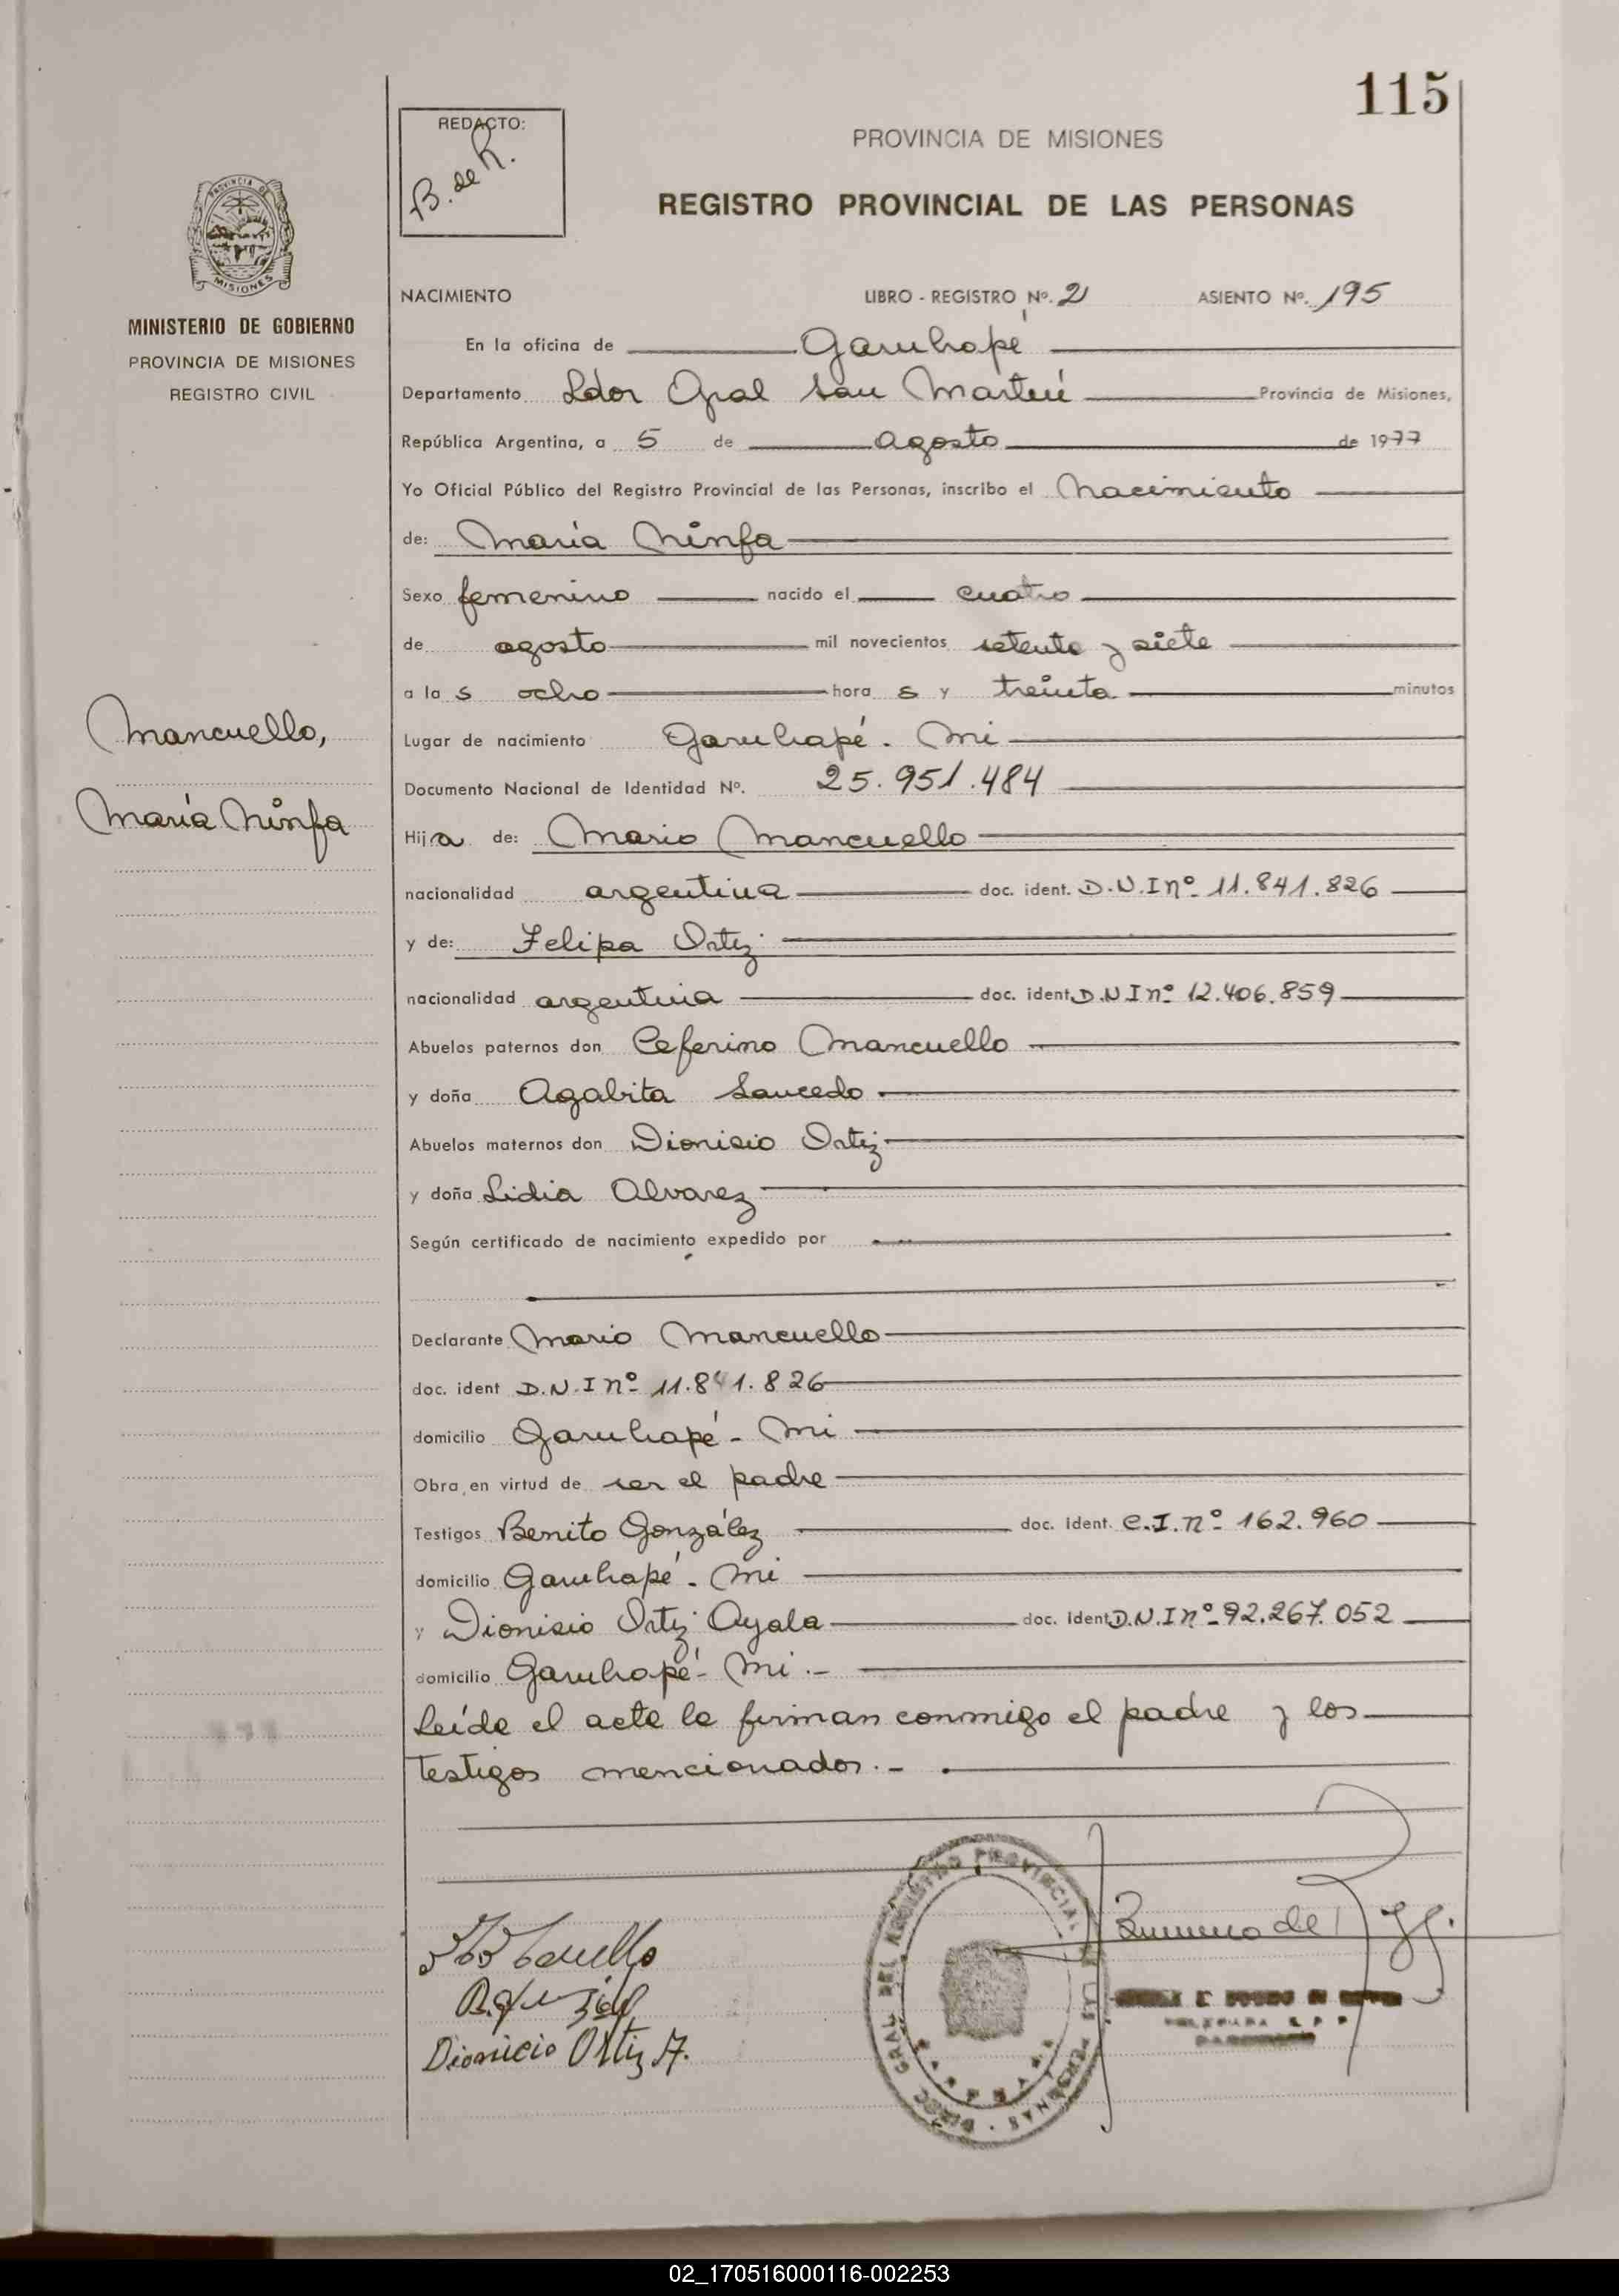 115
REDACTO:
B. de R.
PROVINCIA DE MISIONES
REGISTRO PROVINCIAL DE LAS PERSONAS
PROVINCIA DE
MISIONES
MINISTERIO DE GOBIERNO
PROVINCIA DE MISIONES
REGISTRO CIVIL
Mancuello,
María Ninfa
NACIMIENTO LIBRO - REGISTRO Nº. 2 ASIENTO Nº. 195
En la oficina de Garuhapé
Departamento Ldor Gral San Martín Provincia de Misiones,
República Argentina, a 5 de agosto de 1977
Yo Oficial Público del Registro Provincial de las Personas, inscribo el Nacimiento
de: María Ninfa
Sexo femenino nacido el cuatro
de agosto mil novecientos setenta y siete
a la s ocho hora s y treinta minutos
Lugar de nacimiento Garuhapé. Mi
Documento Nacional de Identidad Nº. 25.951.484
Hija de: Mario Mancuello
nacionalidad argentina doc. ident. D.N.I nº 11.841.826
y de: Felipa Ortiz
nacionalidad argentina doc. ident. D.N.I nº 12.406.859
Abuelos paternos don Ceferino Mancuello
y doña Agabita Saucedo
Abuelos maternos don Dionisio Ortiz
y doña Lidia Alvarez
Según certificado de nacimiento expedido por
Declarante Mario Mancuello
doc. ident D.N.I nº 11.841.826
domicilio Garuhapé - Mi
Obra en virtud de ser el padre
Testigos Benito González doc. ident. C.I. nº 162.960
domicilio Garuhapé. Mi
y Dionisio Ortiz Ayala doc. ident. D.N.I nº 92.267.052
domicilio Garuhapé - Mi.-
Leída el acta la firman conmigo el padre y los
testigos mencionados.-
Dionicio Ortiz A.
DIREC GRAL DEL REGISTRO PROVINCIAL DE LAS PERSONAS
02_170516000116-002253